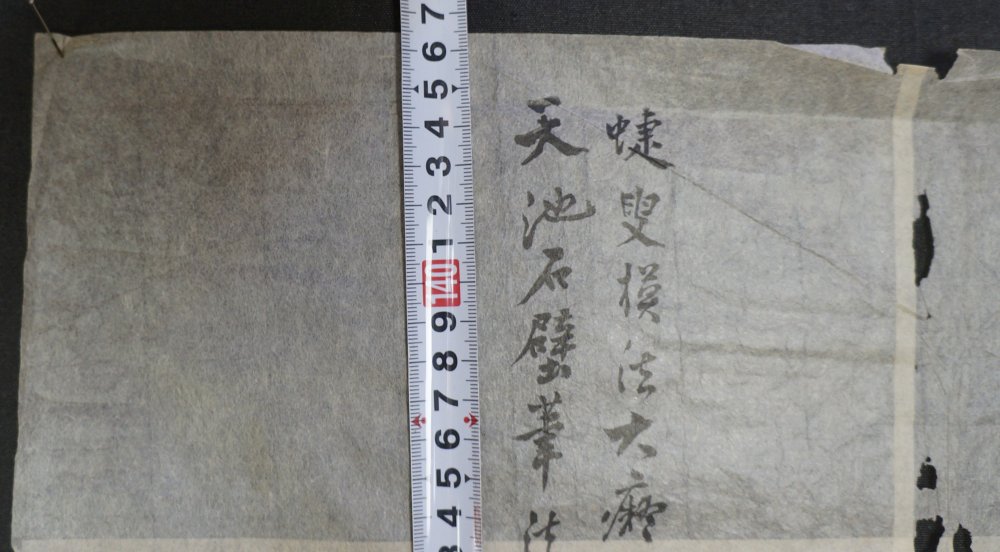 蜨叟模法大癡
天池石壁筆法
7 6 5 4 3 2 1 140 9 8 7 6 5 4